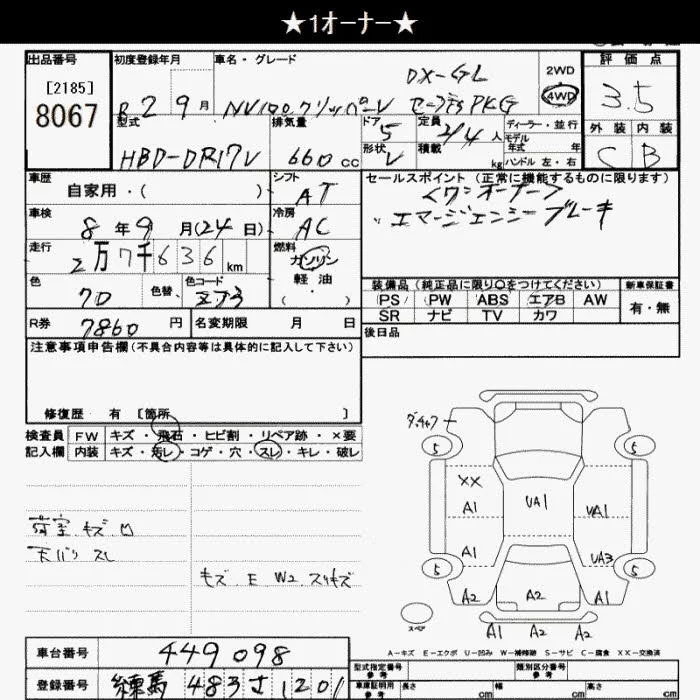 ★1オーナー★
出品番号 初度登録年月 車名・グレード 評価点
[2185]
8067
R 2 9月
DX-GL
NV100クリッパーV セーフティPKG
2WD
4WD
3.5
外装 内装
C B
型式 排気量 ドア 定員 ディーラー・並行
HBD-DR17V 660cc 5 2/4人
モデル年式 年
形状 V 積載 kg ハンドル 左・右
車歴 シフト セールスポイント (正常に機能するものに限ります)
自家用・( ) AT
<ワンオーナー>
〃エマージェンシーブレーキ
車検 冷房
8年9月(24日) AC
走行 燃料
2万7千636km ガソリン
軽油
( )
色 色替 色コード
70 Z73
装備品(純正品に限り○をつけてください) 新車保証書
PS PW ABS エアB AW 有・無
SR ナビ TV カワ
R券 7860円 名変期限 月 日
後日品
注意事項申告欄(不具合内容等は具体的に記入して下さい)
修復歴 有 [箇所 ]
検査員 FW キズ・飛石・ヒビ割・リペア跡・×要
記入欄 内装 キズ・汚レ・コゲ・穴・スレ・キレ・破レ
荷室 キズ 凹
天バリ スレ
キズ E W2 スリキズ
5 5
XX
A1 UA1 UA1
A1 UA3
5 5
A2 A2 A1
スペア
A1 A2 A2
A-キズ E-エクボ U-凹み W-補修跡 S-サビ C-腐食 XX-交換済
車台番号 449098
登録番号 練馬 483 さ 1201
型式指定番号 参考 類別区分番号 参考
車庫証明用 参考 長さ cm 幅 cm 高さ cm